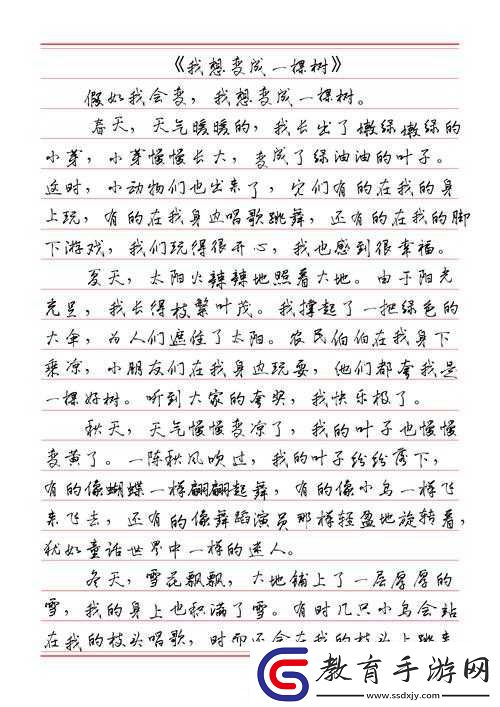 《我想变成一棵树》
假如我会变，我想变成一棵树。
春天，天气暖暖的，我长出了嫩绿嫩绿的
小芽，小芽慢慢长大，变成了绿油油的叶子。
这时，小动物们也出来了，它们有的在我的身
上玩，有的在我身边唱歌跳舞，还有的在我的脚
下游戏，我们玩得很开心，我也感到很幸福。
夏天，太阳火辣辣地照着大地。由于阳光
充足，我长得枝繁叶茂。我撑起了一把绿色的
大伞，为人们遮住了太阳。农民伯伯在我身下
乘凉，小朋友们在我身边玩耍，他们都夸我是
一棵好树。听到大家的夸奖，我快乐极了。
秋天，天气慢慢变凉了，我的叶子也慢慢
变黄了。一阵秋风吹过，我的叶子纷纷落下，
有的像蝴蝶一样翩翩起舞，有的像小鸟一样飞
来飞去，还有的像舞蹈演员那样轻盈地旋转着，
犹如童话世界中一样的迷人。
冬天，雪花飘飘，大地铺上了一层厚厚的
雪，我的身上也积满了雪。有时几只小鸟会站
在我的枝头唱歌，时而还会在我的枝头上跳来
教育手游网
www.ssdxjy.com